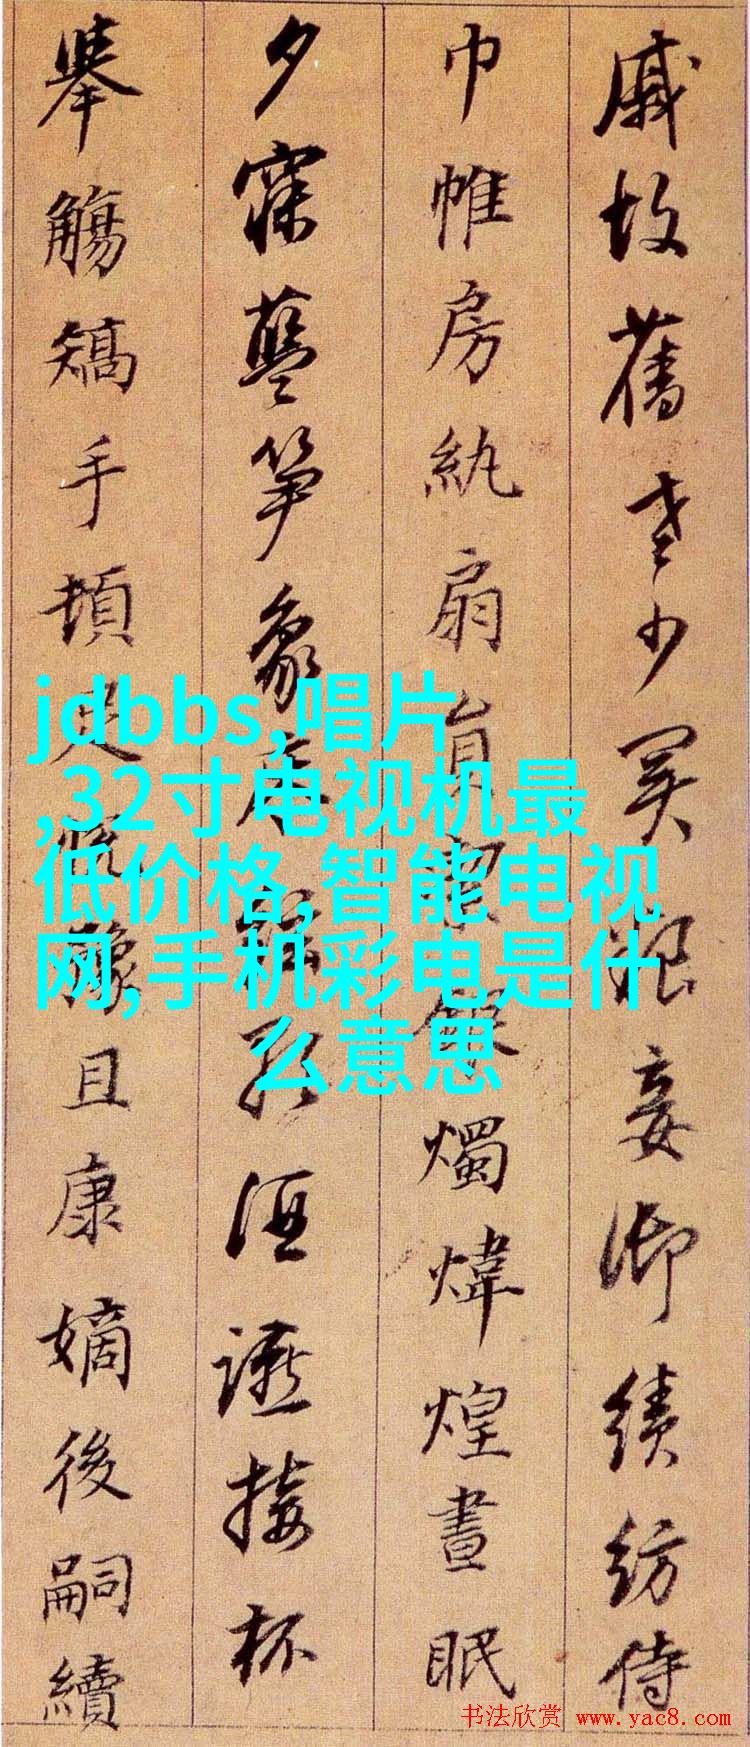 戚故舊老少異粮妾御績紡侍
巾帷房紈扇員潔銀燭煒煌晝眠
夕寐藍笋象床絃歌酒讌接杯
舉觴矯手頓足悅豫且康嫡後嗣續
jdbbs,唱片
,32寸电视机最
低价格,智能电视
网,手机彩电是什
么意思
书法欣赏 www.yac8.com